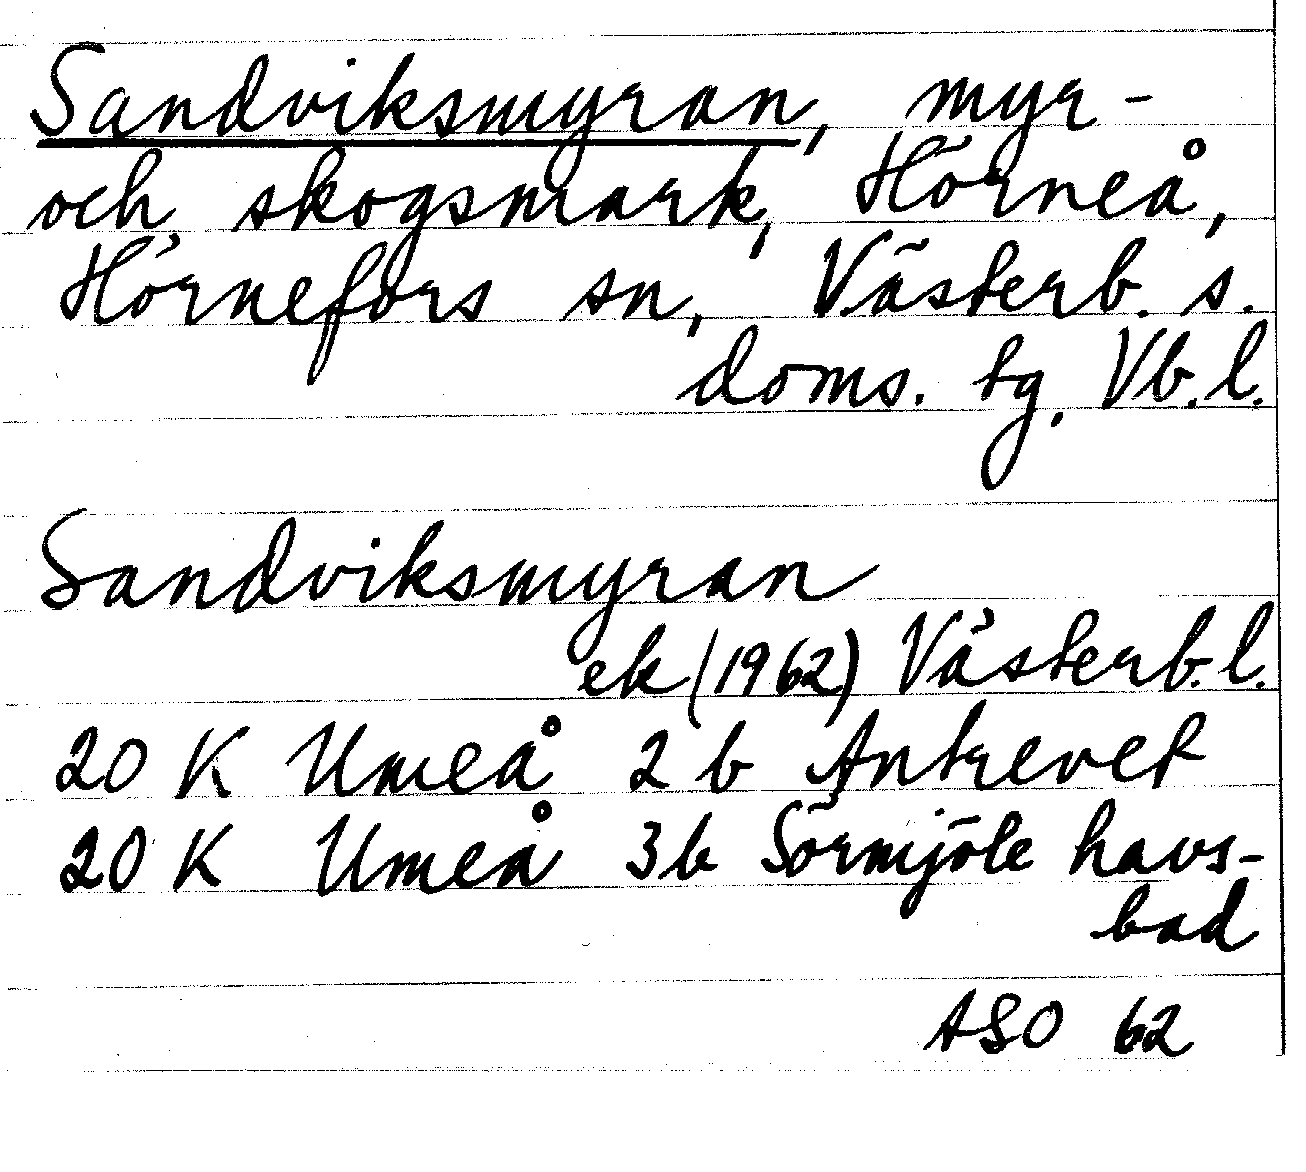 Sandviksmyran, myr-
och skogsmark, Hörneå,
Hörnefors sn, Västerb. s.
doms. tg. Vb.l.
Sandviksmyran
ek (1962) Västerb.l.
20 K Umeå 2 b Antrevet
20 K Umeå 3b Sörmjöle havs-
bad
ASO 62